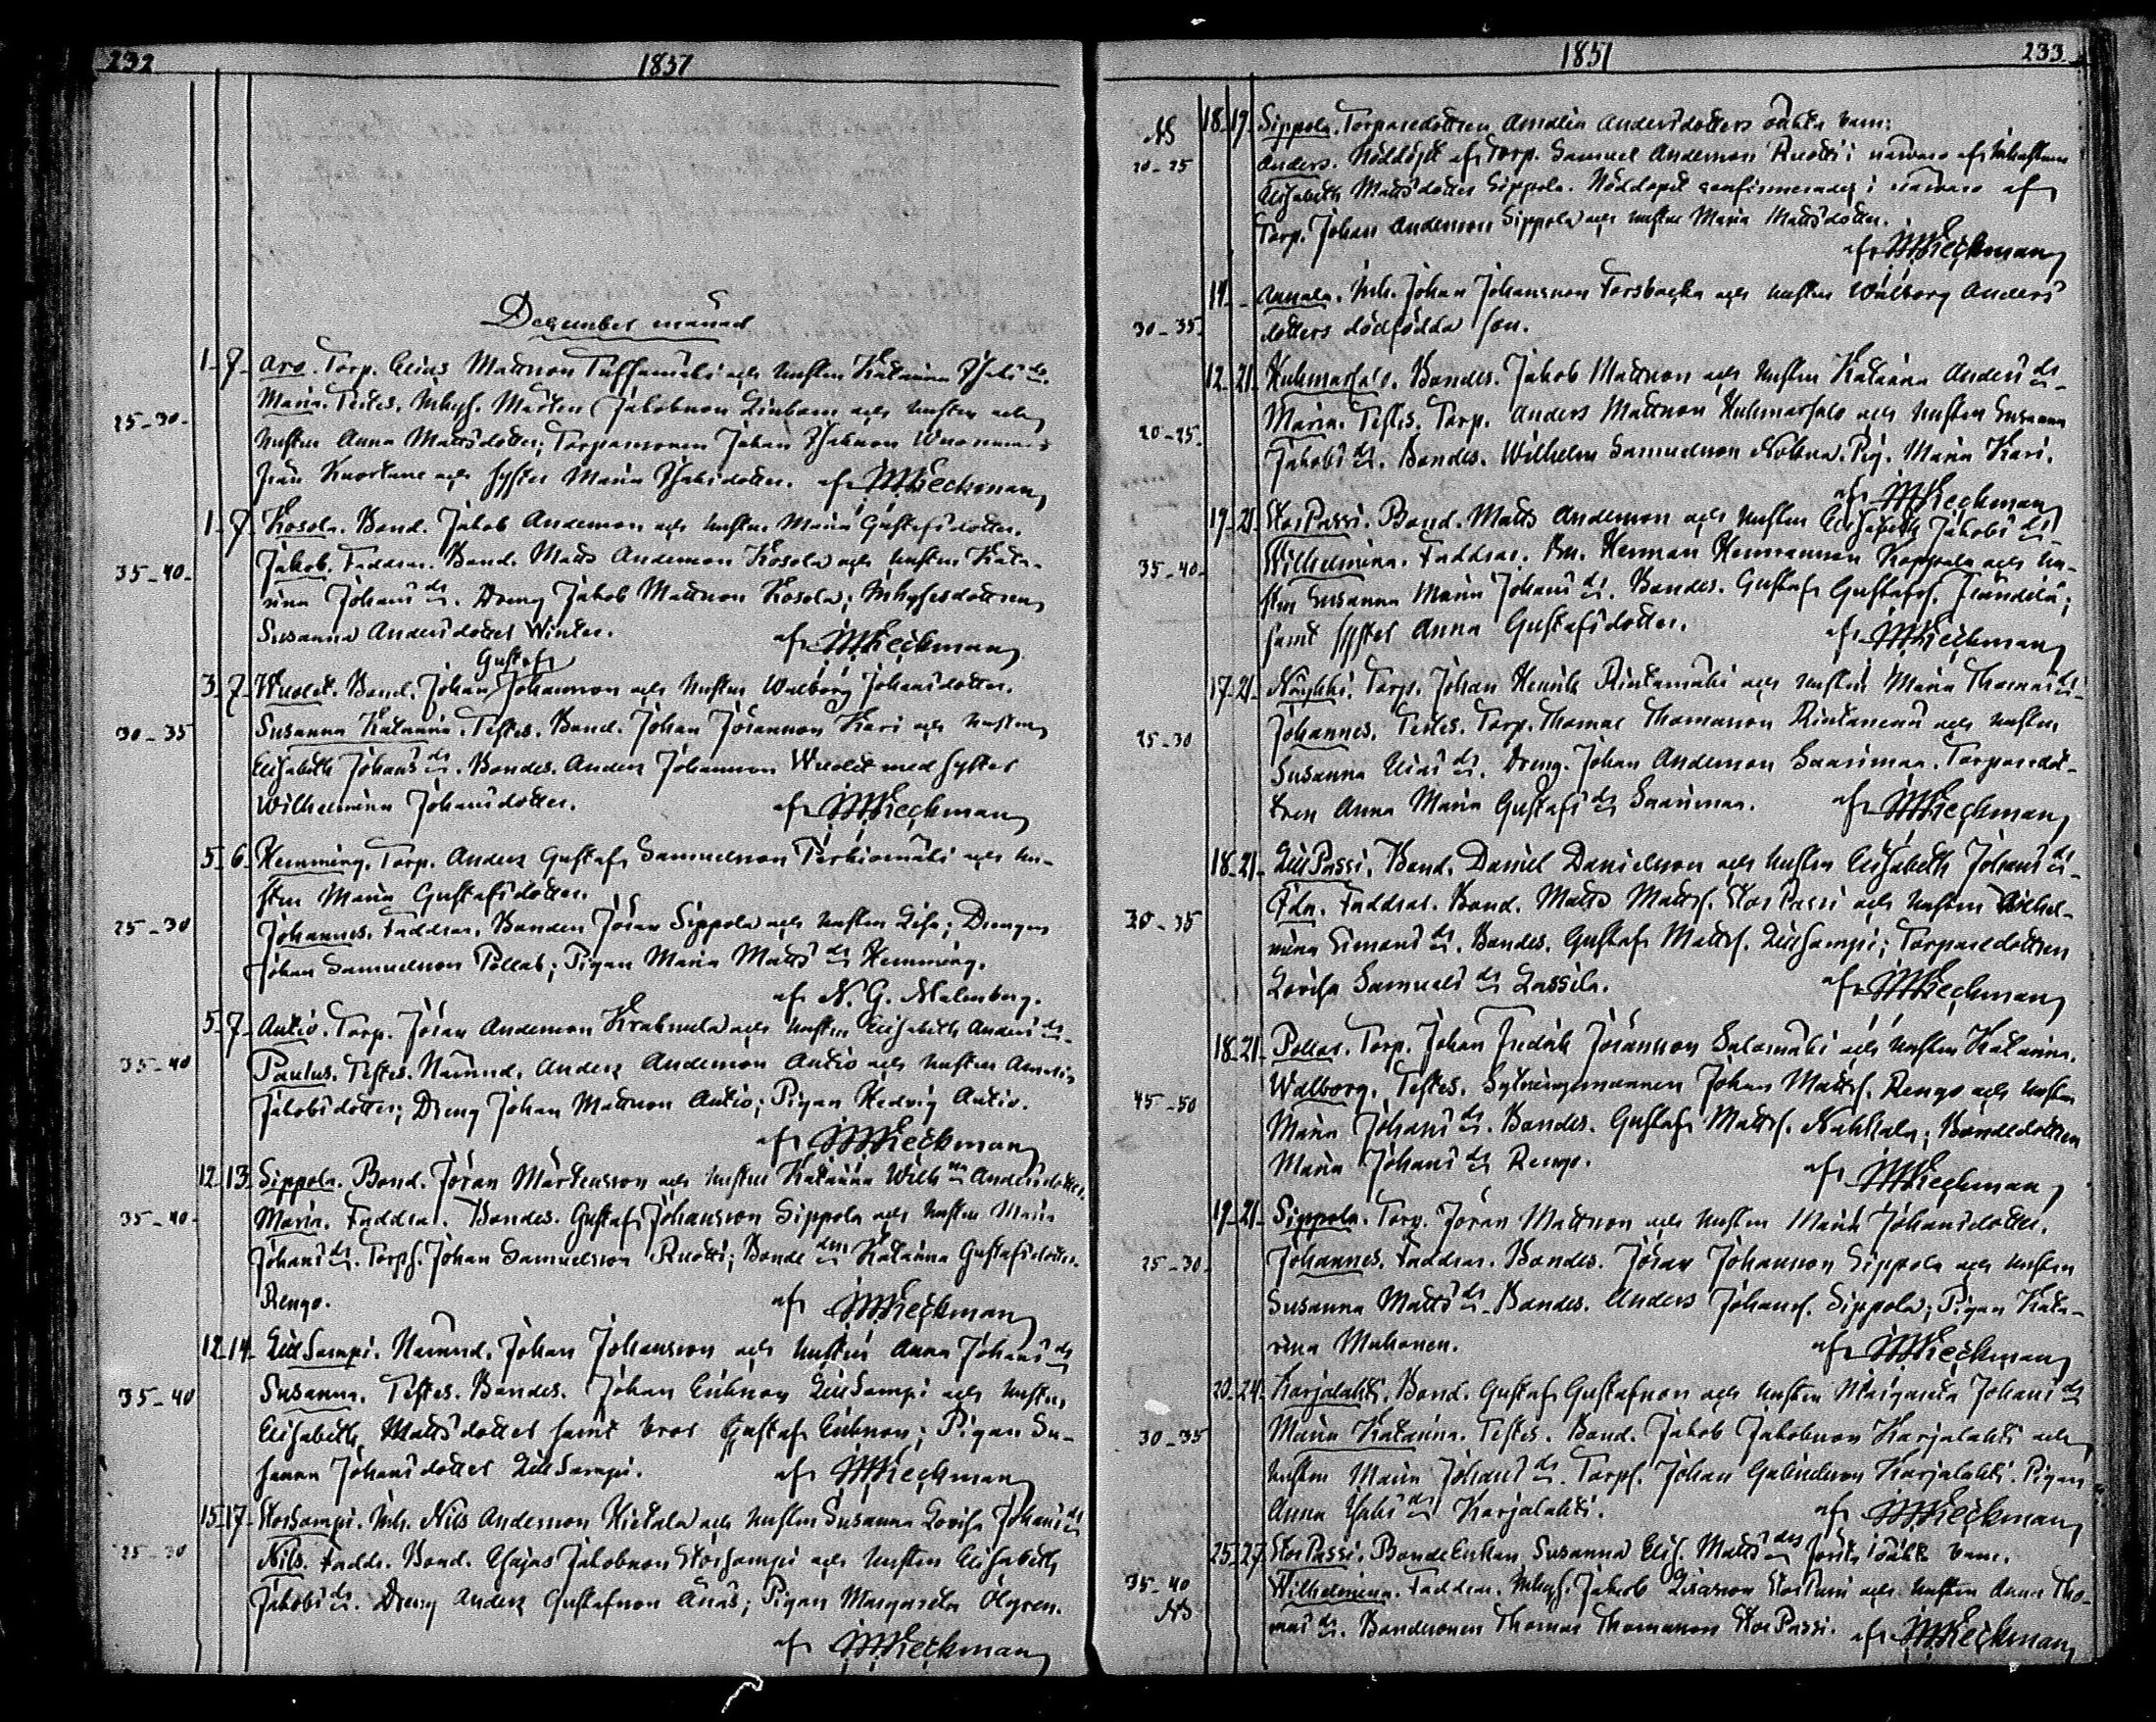 232
1851
December månad
1. 7. Aro. Torp. Elias Mattsson och hustru Katarina
25-30. Maria. Testes. Inhys. Mårten Jakobsson och hustru och
hustru Anna Mattsdotter; Torparesonen Johan
från Kuortane och syster Maria af MKeckman
1. 7. Kosola. Bond. Jakob Andersson och hustru Maria Gustafsdotter.
35-40. Jakob. Faddrar. Bond. Matts Andersson Kosola och hustru Kata-
rina Johans dr. Dreng Jakob Mattsson Kosola; Inhysesdottren
Susanna Andersdotter Winter. af MKeckman
Gustaf
3. 7. Bond. Johan Johansson och hustru Walborg Johansdotter.
30-35 Susanna Katarina. Testes. Bond. Johan Jöransson Kari och hustru
Elisabeth Johans dr. Bondes. Anders Johansson med syster
Wilhelmina Johansdotter. af MKeckman
5. 6. Hemming. Torp. Anders Gustaf Samuelsson och hu-
stru Maria Gustafsdotter.
25-30 Johannes. Faddrar. Bonden Jöran Sippola och hustru Lisa; Drengen
Johan Samuelsson Pollas; Pigan Maria Matts dr Hemming.
af N. G. Malmberg.
5. 7. Antio. Torp. Jöran Andersson och hustru Elisabeth Anders dr.
35-40 Paulus. Testes. Nämnd. Anders Andersson Antio och hustru
Jakobsdotter; Dreng Johan Mattsson Antio; Pigan Hedvig Antio.
af MKeckman
12. 13. Sippola. Bond. Jöran Mårtensson och hustru Katarina Wilh:na Andersdotter.
35-40. Maria. Faddrar. Bondes. Gustaf Johansson Sippola och hustru Maria
Johans dr. Torps. Johan Samuelsson Ruotti; Bonde dn Katarina Gustafsdotter
Rengo. af MKeckman
12. 14. Lill Sampi. Nämnd. Johan Johansson och hustru Anna Johans dr
35-40 Susanna. Testes. Bondes. Johan Eriksson Lill Sampi och hustru
Elisabeth Mattsdotter samt bror Gustaf Eriksson; Pigan Su-
sanna Johansdotter Lill Sampi. af MKeckman
15. 17. Stor Sampi. Inh. Nils Andersson Hietala och hustru Susanna Lovisa Johans dr
25-30 Nils. Faddr. Bond. Jakobsson Stor Sampi och hustru Elisabeth
Jakobs dr. Dreng Anders Gustafsson Ånäs; Pigan Margareta
af MKeckman
1851 233
18. 19. Sippola. Torparedottren Amalia Andersdotters oäkta barn:
20-25 Anders. Nöddöpt af Torp. Samuel Andersson Ruotti i närvaro af
Elisabeth Mattsdotter Sippola. Nöddopet confirmerades i närvaro af
Torp. Johan Andersson Sippola och hustru Maria Mattsdotter.
af MKeckman
Annala. Inh. Johan Johansson Forsbacka och hustru Walborg Anders-
30-35. dotters dödfödda son.
12. 21. Huhmarsalo. Bondes. Jakob Mattsson och hustru Katarina Anders dr.
20-25. Maria. Testes. Torp. Anders Mattsson Huhmarsalo och hustru Susanna
Jakobs dr. Bondes. Wilhelm Samuelsson Pig. Maria Kari.
af MKeckman
19. 21. Stor Passi. Bond. Matts Andersson och hustru Elisabeth Jakobs dr.
35-40. Wilhelmina. Faddrar. Herman Hermansson och hu-
stru Susanna Maria Johans dr. Bondes. Gustaf Gustafss.
samt syster Anna Gustafsdotter. af MKeckman
17. 21. Torp. Johan Henrik Rintamäki och hustru Maria Thomas dr.
25-30 Johannes. Testes. Torp. Thomas Thomasson Rintamäki och hustru
Susanna Elias dr. Dreng. Johan Andersson Saarimaa. Torparedot-
tren Anna Maria Gustafs dr Saarimaa. af MKeckman
18. 21. Lill Passi. Bond. Daniel Danielsson och hustru Elisabeth Johans dr.
30-35 Ida. Faddrar. Bond. Matts Mattss. Stor Passi och hustru Wilhel-
mina Simons dr. Bondes. Gustaf Mattss. Lill Sampi; Torparedottren
Lovisa Samuels dr Lassila. af MKeckman
18. 21. Pollas. Torp. Johan Fredrik Jöransson Salomäki och hustru Katarina.
45-50 Walborg. Testes. Sytningsmannen Johan Mattss. Rengo och hustru
Maria Johans dr. Bondes. Gustaf Mattss. Bondedottren
Maria Johans dr Rengo. af MKeckman
19. 21. Sippola. Torp. Jöran Mattsson och hustru Maria Johansdotter.
25-30. Johannes. Faddrar. Bondes. Jöran Johansson Sippola och hustru
Susanna Matts dr. Bondes. Anders Johanss. Sippola; Pigan Kata-
rina Muhonen. af MKeckman
20. 24. Karjalahti. Bond. Gustaf Gustafsson och hustru Margareta Johans dr
30-35 Maria Katarina. Testes. Bond. Jakob Jakobsson Karjalahti och
hustru Maria Johans dr. Torps. Johan Karjalahti. Pigan
Anna dr Karjalahti. af MKeckman
25. 27. Stor Passi. Bonde Enkan Susanna Elis. Matts drs oäkta barn.
35-40 Wilhelmina. Faddrar. Inhys. Jakob Stor Passi och hustru Anna Tho-
mas dr. Bondesonen Thomas Thomasson Stor Passi. af MKeckman